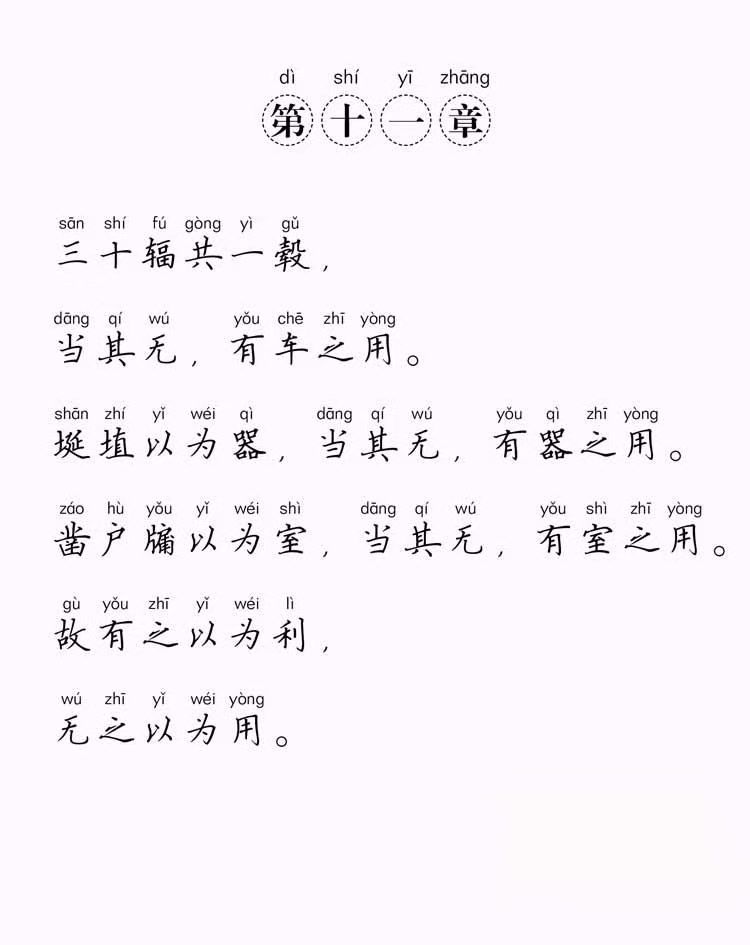 dì shí yī zhāng
第十一章
sān shí fú gòng yì gǔ
三十辐共一毂，
dāng qí wú yǒu chē zhī yòng
当其无，有车之用。
shān zhí yǐ wéi qì dāng qí wú yǒu qì zhī yòng
埏埴以为器，当其无，有器之用。
záo hù yǒu yǐ wéi shì dāng qí wú yǒu shì zhī yòng
凿户牖以为室，当其无，有室之用。
gù yǒu zhī yǐ wéi lì
故有之以为利，
wú zhī yǐ wéi yòng
无之以为用。